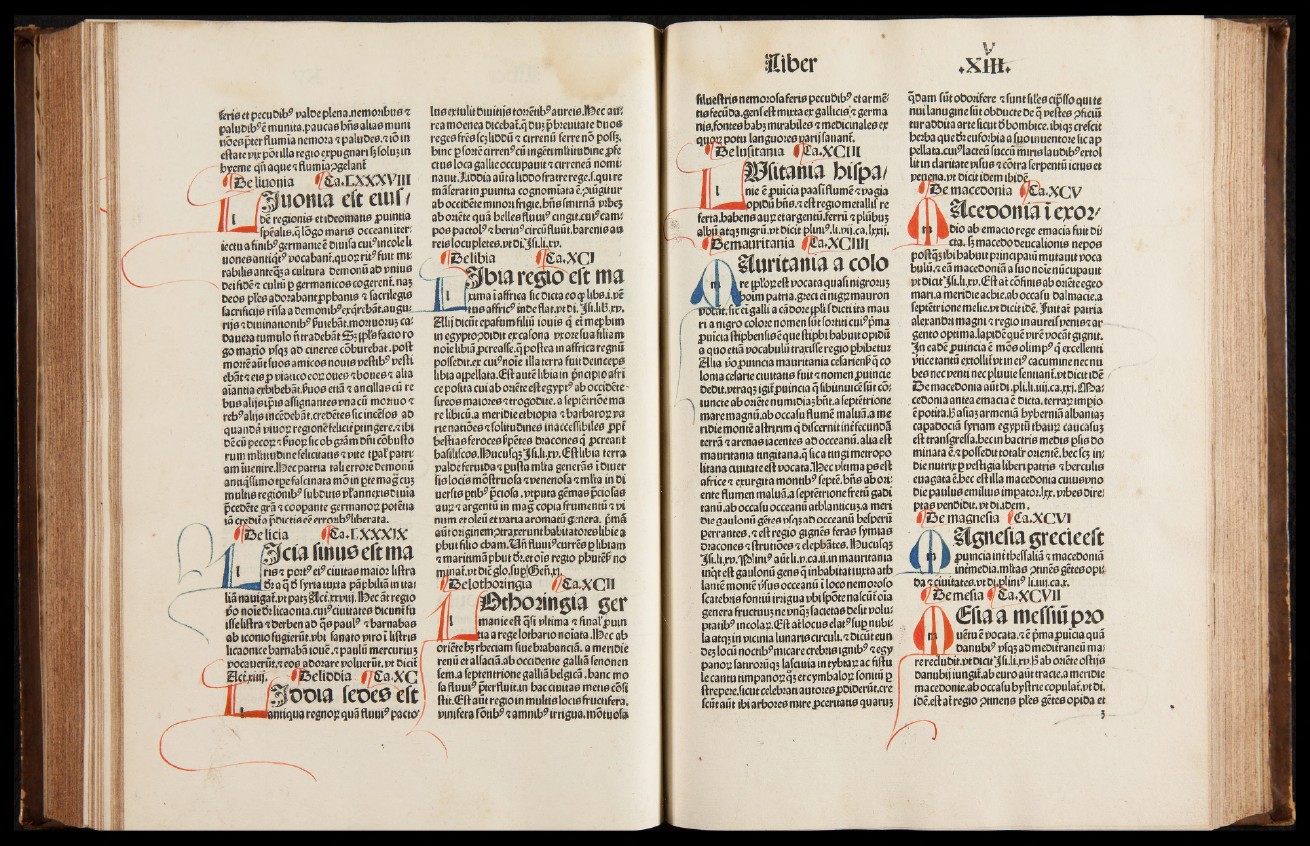 feris et pecudibꝰ valde plena. nemoribus ⁊
paludibꝰ ē munita. paucas hn̄s alias muni
tiōes p̄ter flumia nemora ⁊ paludes. ⁊ iō in
estate vix pōt illa regio expugnari sꝫ solum in
hyeme qn̄ aque ⁊ flumia ꝯgelant̄
De liuonia Ca. LXXXVIII
LIuonia est eius /
dē regionis et ideomatis ꝓuintia
sp̄ealis. q̄ lōgo maris occeani iter
iectu a finibꝰ germanie ē diuisa cuiꝰ incole li
uones antiqͥtꝰ vocabant̄. quoꝝ ritꝰ fuit mi
rabilis anteqͣꝫ a cultura demonū ad vnius
dei fidē ⁊ cultū ꝑ germanicos cogerent̄. naꝫ
deos ples adorabant ꝓphanis ⁊ sacrilegis
sacrificijs rn̄sa a demonibꝰ exqͥrebāt. augu
rijs ⁊ diuinationibꝰ ẜuiebāt. mortuoꝝ ca
dauera tumulo nō tradebāt Sꝫ ppl̄s facto ro
go maxīo vsqꝫ ad cineres cōburebat. post
mortē aūt suos amicos nouis vestibꝰ vesti
ebāt ⁊ eis ꝓ viatico oues ⁊ boues ⁊ alia
aīantia exhibebāt. ẜuos etiā ⁊ ancillas cū re
bus alijs ip̄is assignantes vna cū mortuo ⁊
rebꝰ alijs incēdebāt. credētes sic incēsos ad
quandā viuoꝝ regionē felicit̄ ꝑtingere. ⁊ ibi
dē cū pecoꝝ ⁊ ẜuoꝝ sic ob grām dn̄i cōbusto
rum mltitudine felicitatis ⁊ vite tꝑal̓ patri
am īuenire. Hec patria tali errore demonū
antiqͥssimo tꝑe fascinata mō in ꝑte magͣ cuꝫ
multis regionibꝰ subditis vl̓ annexis diuia
p̄cedēte grā ⁊ coopante germanoꝝ potētia
iā credit̄ a p̄dictis eē erroribꝰ liberata.
De licia Ca. LXXXIX
LIcia sinus est ma
ris ⁊ portꝰ eiꝰ ciuitas maior listra
dc̄a q̄ d̓ syria iuxta pāphiliā in ita
liā nauigat̄. vt patꝫ Act̄. xxvij. Hec āt regio
ṽo noīe dr̄ licaonia. cuiꝰ ciuitates dicunt̄ fu
isse listra ⁊ derben ad q̄s paulꝰ ⁊ barnabas
ab iconio fugierūt. vbi sanato viro ī listris
licaonice barnabā iouē. ⁊ paulū mercuriuꝫ
vocauerūt. ⁊ eos adorare voluerūt. vt dicit̄
Act̄. xiiij. De liddia Ca. XC
LIddia sedes est
antiqua regnoꝝ quā fluuiꝰ pacto
lus extulit diuitijs torētibꝰ aureis. Hec an
rea moenea dicebat̄. q̄ duꝫ ꝑ breuitate duos
reges fr̄es scꝫ liddū ⁊ cirrenū ferre nō possꝫ.
hinc ꝓ sorte cirrenꝰ cū ingēti mltitudine ꝓfe
ctus loca gallie occupauit ⁊ cirreneā nomi
nauit. Liddia aūt a liddo fratre rege. s. qui re
māserat in ꝓuintia cognomiata ē. ꝯiūgitur
ab occidēte minori frigie. hn̄s smirnā vrbeꝫ
ab oriēte quā belles fluuiꝰ cingit. cuiꝰ cam
pos pactolꝰ ⁊ herinꝰ circūfluūt. harenis au
reis locupletes. vt di. Isi. li. xv.
De libia Ca. XCI
LIbia regio est ma
xima ī affrica sic dicta eo ꝙ libs. i. vē
tus affricꝰ inde flat. vt di. Isi. lib. xv.
Alij dicūt epafum filiū iouis q̄ et mephim
in egypto ꝯdidit ex casona vxore sua filiam
noīe libiā ꝓcreasse. q̄ postea in affrica regnū
possedit. ex cuiꝰ noīe illa terra fuit deinceps
libia appellata. Est autē libia in p̄ncipio afri
ce posita cui ab oriēte est egyptꝰ ab occidēte
sirtes maiores ⁊ trogodite. a septētriōe ma
re libicū. a meridie ethiopia ⁊ barbaroꝝ va
rie natiōes ⁊ solitudines inaccessibiles ꝓpt̄
bestias feroces sꝑētes dracones q̄ ꝓcreant
basiliscos. Hucusqꝫ Isi. li. xv. Est libia terra
valde feruida ⁊ ꝓusta mlta generās ī diuer
sis locis mōstruosa ⁊ venenosa ⁊ mlta in di
uersis ꝑtibꝰ p̄ciosa. vtputa gēmas p̄ciosas
auꝝ ⁊ argentū in magͣ copia frumentū ⁊ vi
num et oleū et varia aromatū genera. pͥmā
aūt originem ꝯtraxerunt habitatores libie a
phut filio cham. Vn̄ fluuiꝰ currēs ꝑ libiam
⁊ maritimā phut dr̄. et oīs regio phutēsꝰ no
minat̄. vt dic̄ glo. sup Gen̄. xj.
De lothoringia Ca. XCII
LOthoringia ger
manie est qͣsi vltima ⁊ final̓ ꝓuin
tia a rege lothario noīata. Hec ab
oriēte hꝫ rheciam siue brabanciā. a meridie
renū et alsaciā. ab occidente galliā senonen
sem. a septentrione galliā belgicā. hanc mo
sa fluuiꝰ p̄terfluit. in hac ciuitas metis cōsi
stit. Est aūt regio in multis locis frucifera.
vinifera fōtibꝰ ⁊ amnibꝰ irrigua. mōtuosa
Liber .XV.
siluestris nemorosa feris pecudibꝰ et armē
tis fecūda. gens est mixta ex gallicis ⁊ germa
nis. fontes habꝫ mirabiles ⁊ medicinales ex
quoꝝ potu languores varij sanant̄.
De lusitania Ca. XCIII
LUsitania hispa/
nie ē ꝓuīcia paasi flumē ⁊ vagia
opidū hn̄s. ⁊ est regio metallis re
ferta. habens auꝝ et argentū. ferrū ⁊ plūbuꝫ
albū atqꝫ nigrū. vt dicit pliniꝰ. li. vij. ca. lxxij.
De mauritania Ca. XCIIII
MAuritania a colo
re pplōꝝ est vocata quasi nigroruꝫ
hoīm patria. greci eī nigꝝ mauron
vocāt. sic eī galli a cādore pplī sic dicti ita mau
ri a nigro colore nomen sūt sortiti cuiꝰ pͥma
ꝓuīcia stiphensis ē que stiphi habuit opidū
a quo etiā vocabulū traxisse regio ꝑhibetur
Alia ṽo ꝓuincia mauritania cesariensꝰ q̄ co
lonia cesarie ciuitatis fuit ⁊ nomen ꝓuincie
dedit. vtraqꝫ igit̄ ꝓuincia q̄ sibi inuicē sūt cō
iuncte ab oriēte numidiaꝫ hn̄t. a septētrione
mare magnū. ab occasu flumē maluā. a me
ridie montē astrixim q̄ discernit int̄ fecundā
terrā ⁊ arenas iacentes ad occeanū. alia est
mauritania tingitana. q̄ sic a tingi metropo
litana ciuitate est vocata. Hec vltima ꝑs est
africe ⁊ exurgit a montibꝰ septē. hn̄s ab ori
ente flumen maluā. a septētrione fretū gadi
tanū. ab occasu occeanū athlanticuꝫ. a meri
die gaulonū gētes vsqꝫ ad occeanū hesperiū
ꝑerrantes. ⁊ est regio gignēs feras symias
dracones ⁊ strutiōes ⁊ elephātes. Hucusqꝫ
Isi. li. xv. Pliniꝰ aūt li. v. ca. ij. in mauritania
inqͥt est gaulonū gens q̄ inhabitat iuxta ath
lantē montē vsus occeanū ī loco nemoroso
scatebris fontiū irrigua vbi spōte nascūt̄ oīa
genera fructuuꝫ ne vnqͣꝫ facietas desit volu
ptatibꝰ incolaꝝ. Est aūt locus elatꝰ suꝑ nubi
la atqꝫ in vicinia lunaris circuli. ⁊ dicūt eun
deꝫ locū noctibꝰ micare crebris ignibꝰ ⁊ egy
panoꝝ satiroruꝫqꝫ lasciuia in tybiaꝝ ac fistu
le cantu timpanoꝝqꝫ et cymbaloꝝ sonitū ꝑ
strepere. sicut celebrati autores ꝓdiderūt. cre
scūt aūt ibi arbores mire ꝓceritatis quaruꝫ
q̄dam sūt odorifere ⁊ sunt siles cip̄sso qui te
nui lanugine sūt obducte de q̄ vestes ꝯficiū
tur addita arte sicut d̓ bombice. ibiqꝫ crescit
herba que dr̄ euforbia a suo inuentore sic ap
pellata. cuiꝰ lacteū succū miris laudibꝰ extol
lit in claritate visus ⁊ cōtra serpentū ictus et
venena. vt dicit idem ibidē
De macedonia Ca. XCV
MAcedonia ī exor/
dio ab emacio rege emacia fuit di
cta. sꝫ macedo deucalionis nepos
postqͣꝫ ibi habuit principatū mutauit voca
bulū. ⁊ eā macedoniā a suo noīe nūcupauit
vt dicit Isi. li. xv. Est aūt cōfinis ab oriēte egeo
mari. a meridie achie. ab occasu dalmacie. a
septētrione mesie. vt dicit idē. Fuit aūt patria
alexandri magni ⁊ regio in aureis venis ⁊ ar
gento optima. lapidē quē virē vocāt gignit.
In eadē ꝓuincia ē mōs olimpꝰ q̄ excellenti
vtice tantū extollit̄ vt in eiꝰ cacumine nec nu
bes nec venti nec pluuie sentiant̄. vt dicit idē
De macedonia aūt di. pli. li. iiij. ca. xj. Ma
cedonia antea emacia ē dicta. terraꝝ impio
ē potita. H asiaꝫ armeniā hyberniā albaniaꝫ
capadociā syriam egyptū thauꝝ caucasuꝫ
est transgressa. hec in bactris medis ꝑsis do
minata ē. ⁊ possedit totalr̄ orientē. hec scꝫ in
die nutrix ꝑ vestigia liberi patris ⁊ herculis
euagata ē. hec est illa macedonia cuius vno
die paulus emilius impator. lxx. vrbes dire
ptas vendidit. vt di. idem.
De magnesia Ca. XCVI
MAgnesia grecie est
ꝓuincia int̄ thessaliā ⁊ macedoniā
intermedia. mltas ꝯtinēs gētes opi
da ⁊ ciuitates. vt di. pliniꝰ li. iiij. ca. x.
De mesia Ca. XCVII
MEsia a messiū pro
uētu ē vocata. ⁊ ē pͥma ꝓuīcia quā
danubiꝰ vsqꝫ ad mediterraneū ma
re recludit. vt dicit Isi. li. xv. H ab oriēte ostijs
danubij iungit̄. ab euro aūt tracie. a meridie
macedonie. ab occasu hystrie copulat̄. vt di.
idē. est aūt regio ꝯtinens ples gētes opida et
3